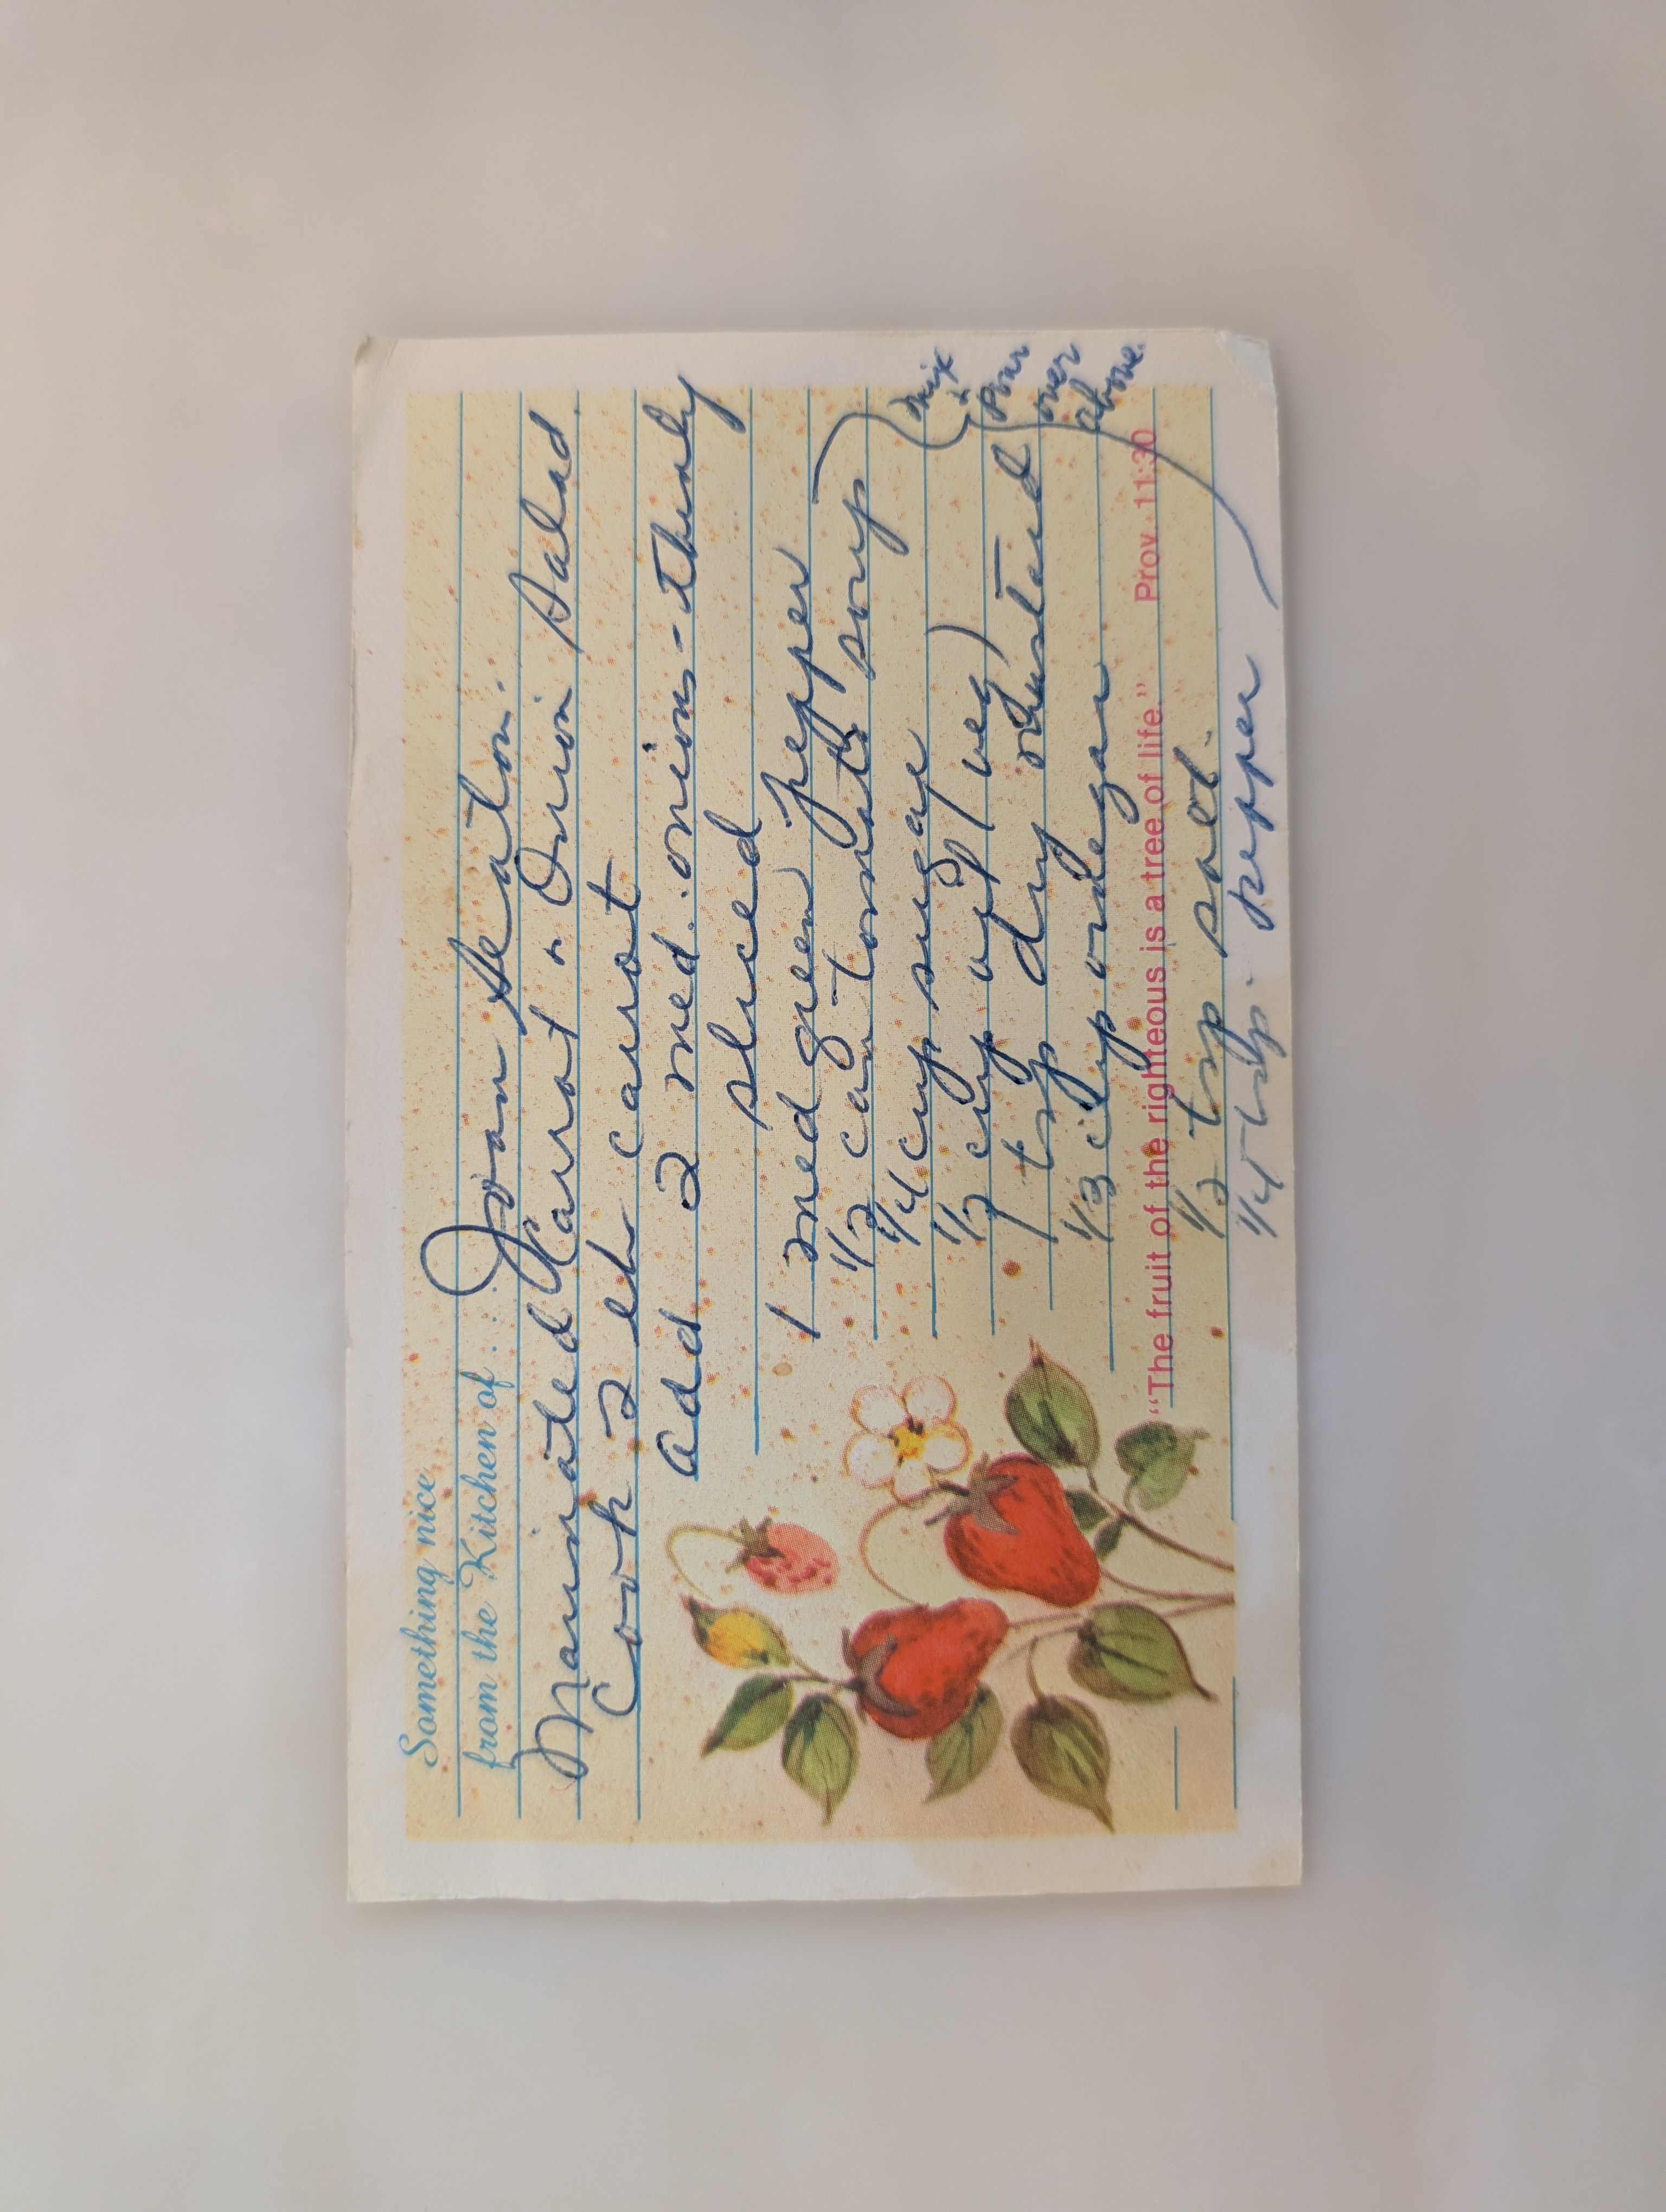 Something nice
from the Kitchen of : Joan Seaton.
Marinated Carrot & Onion Salad.
Cook 2 lb carrot
Add 2 med. onions - thinly
sliced
1 med green pepper
1/2 can tomato soup
1/4 cup sugar
1/2 cup oil (veg)
1 tsp dry mustard
1/3 cup vinegar
"The fruit of the righteous is a tree of life." Prov. 11:30
1/2 tsp salt.
1/4 tsp. pepper
mix
&
pour
over
above.